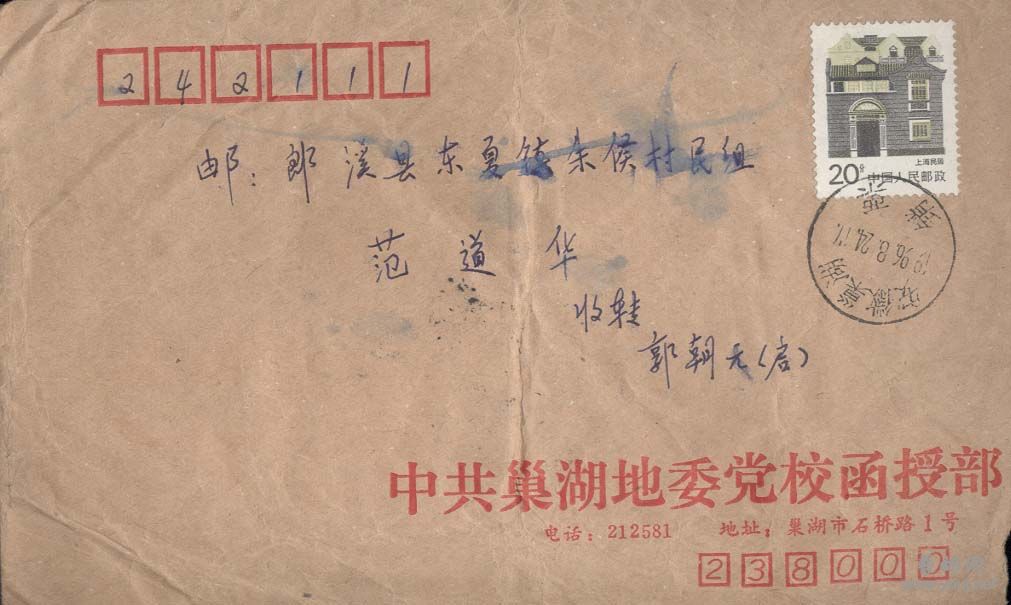 242111
上海民居
20分 中国人民邮政
邮：郎溪县东夏镇余侯村民组
范道华
收转
郭朝元（启）
安徽巢湖
1996.8.24.17
中共巢湖地委党校函授部
电话：212581 地址：巢湖市石桥路1号
238000